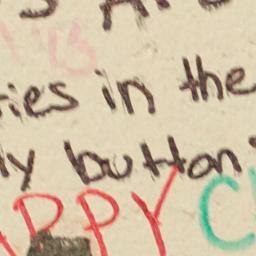 ies in the
ly button
PPY C